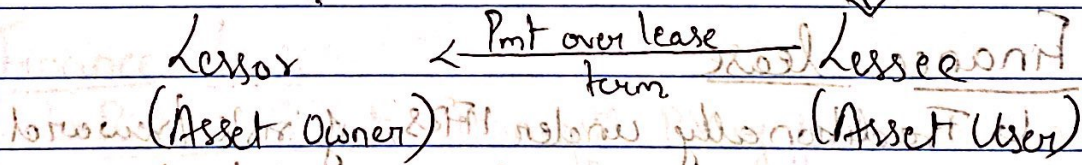 Lessor ← Pmt over lease term Lessee
(Asset Owner) (Asset User)